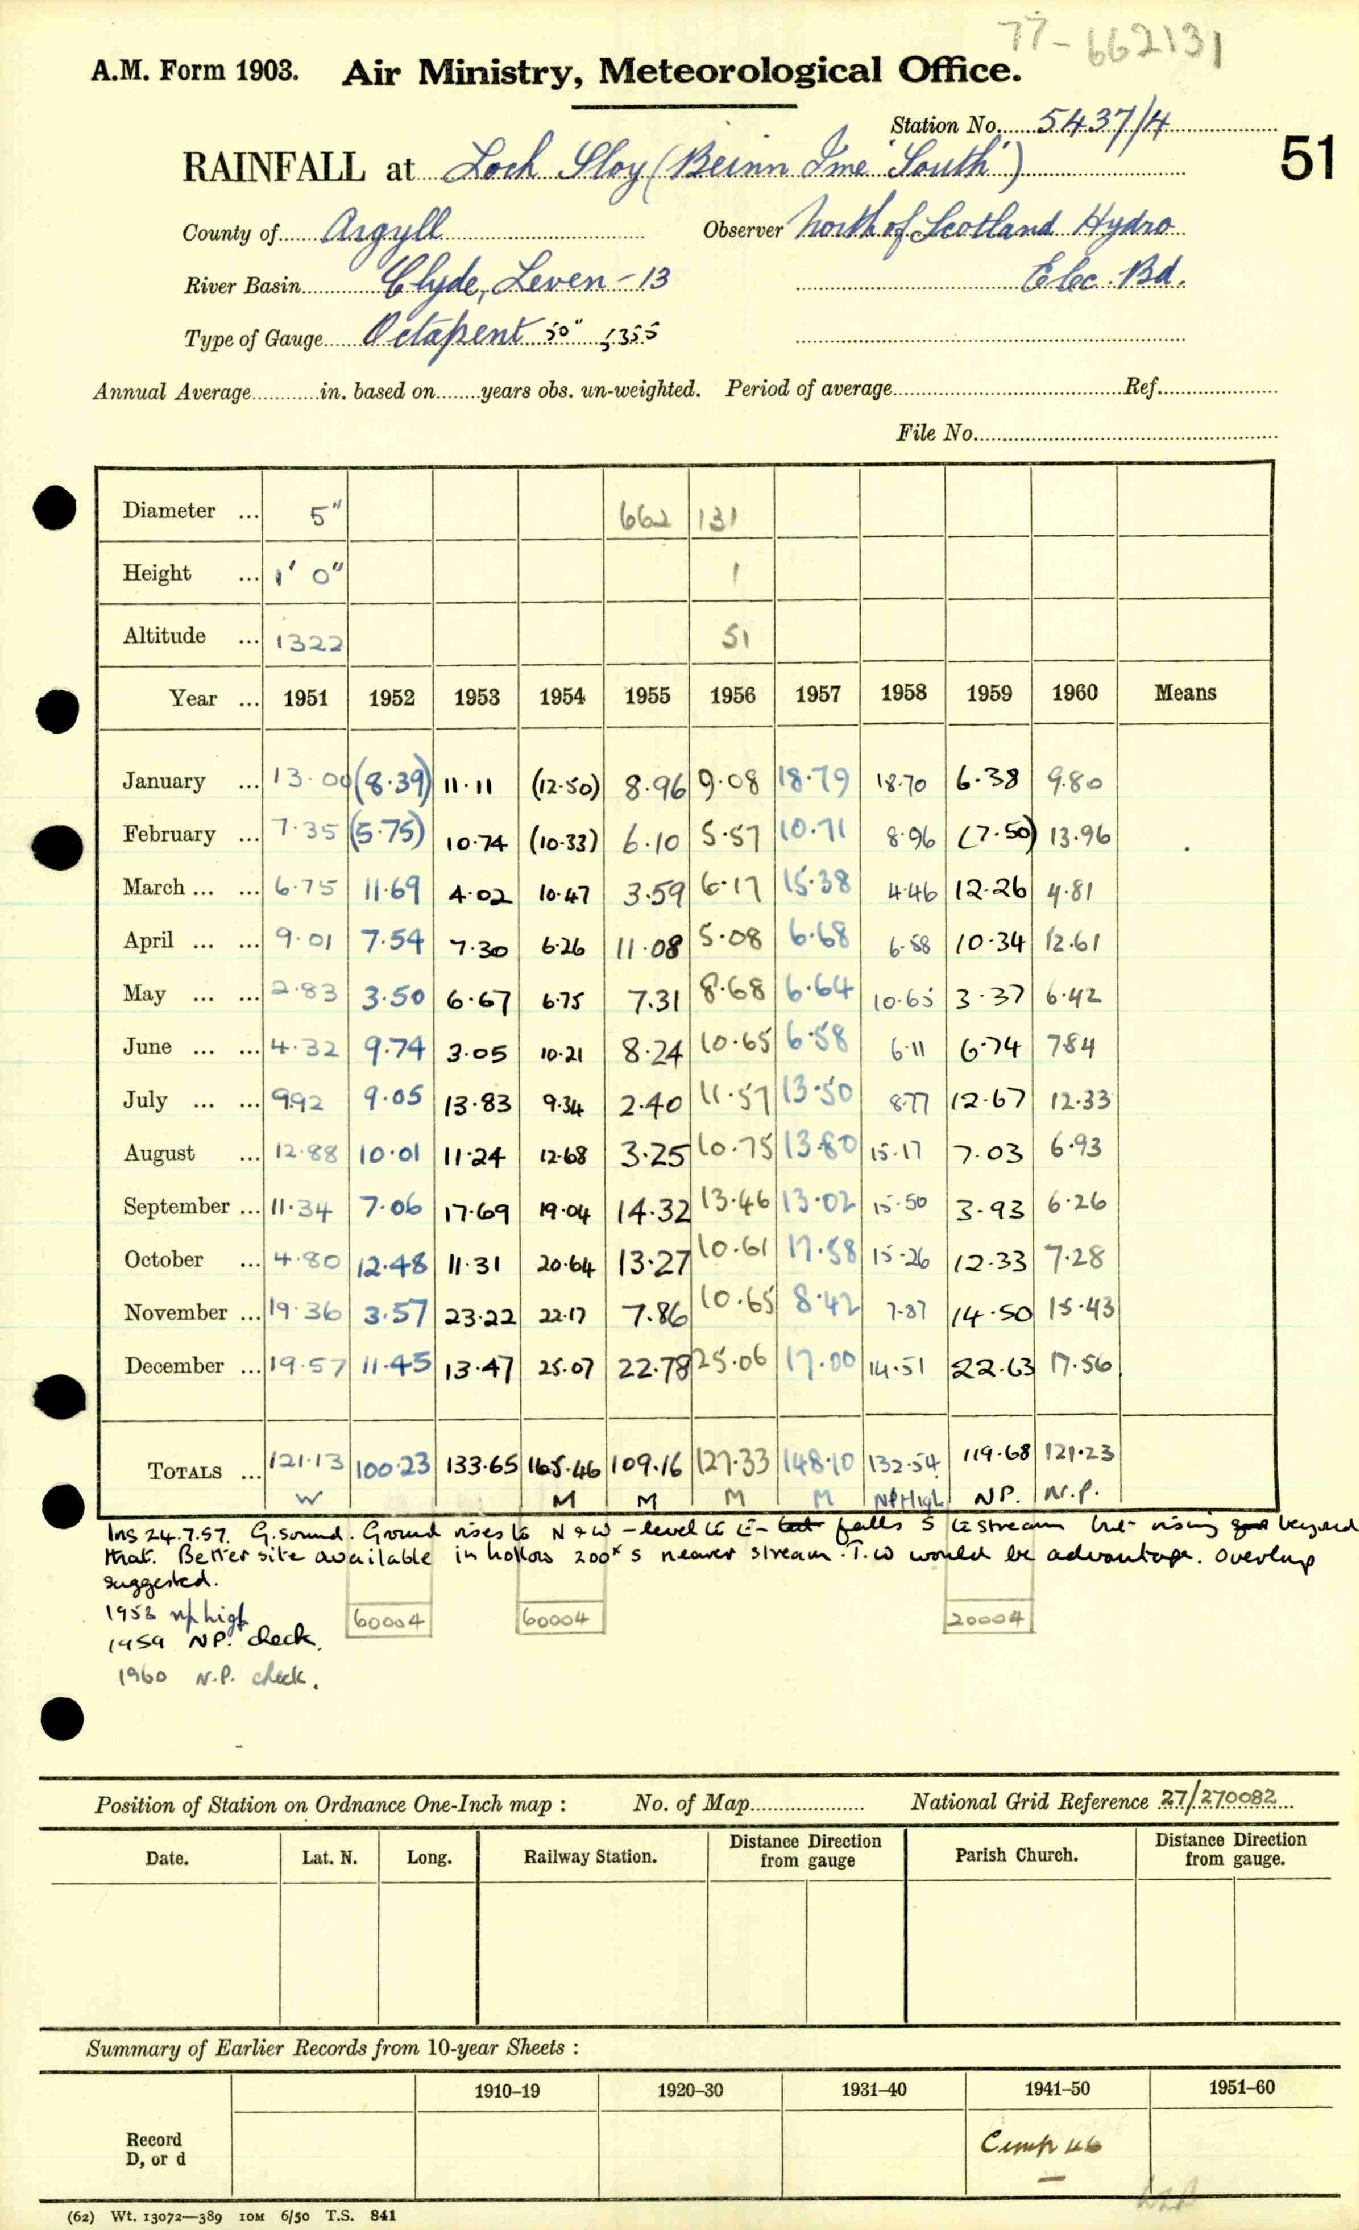 77-662131
A.M. Form 1903. Air Ministry, Meteorological Office.
Station No. 5437/4
RAINFALL at Loch Sloy (Beinn Ime 'South')
51
County of Argyll Observer North of Scotland Hydro
River Basin Clyde, Leven - 13 Elec. Bd.
Type of Gauge Octapent 50"
Annual Average in. based on years obs. un-weighted. Period of average Ref.
File No.
Diameter ... 5" 662 131
Height ... 1' 0" 1
Altitude ... 1322 51
Year ... 1951 1952 1953 1954 1955 1956 1957 1958 1959 1960 Means
January ... 13.00 (8.39) 11.11 (12.50) 8.96 9.08 18.79 18.70 6.38 9.80
February ... 7.35 (5.75) 10.74 (10.33) 6.10 5.57 10.71 8.96 (7.50) 13.96
March ... ... 6.75 11.69 4.02 10.47 3.59 6.17 15.38 4.46 12.26 4.81
April ... ... 9.01 7.54 7.30 6.26 11.08 5.08 6.68 6.58 10.34 12.61
May ... ... 2.83 3.50 6.67 6.75 7.31 8.68 6.64 10.65 3.37 6.42
June ... ... 4.32 9.74 3.05 10.21 8.24 10.65 6.58 6.11 6.74 7.84
July ... ... 9.92 9.05 13.83 9.34 2.40 11.57 13.50 8.77 12.67 12.33
August ... 12.88 10.01 11.24 12.68 3.25 10.75 13.80 15.17 7.03 6.93
September ... 11.34 7.06 17.69 19.04 14.32 13.46 13.02 15.50 3.93 6.26
October ... 4.80 12.48 11.31 20.64 13.27 10.61 17.58 15.26 12.33 7.28
November ... 19.36 3.57 23.22 22.17 7.86 10.65 8.42 7.87 14.50 15.43
December ... 19.57 11.45 13.47 25.07 22.78 25.06 17.00 14.51 22.63 17.56
TOTALS ... 121.13 100.23 133.65 165.46 109.16 127.33 148.10 132.54 119.68 121.23
W M M M M NP High NP. N.P.
Ins 24.7.57. G. sound. Ground rises to N & W - level to E - falls S to stream but rising beyond
that. Better site available in hollow 200x S nearer stream. T.W would be advantage. Overlap
suggested.
1958 np high 60004 60004 20004
1959 NP. check.
1960 N.P. check.
Position of Station on Ordnance One-Inch map : No. of Map National Grid Reference 27/270082
Date. Lat. N. Long. Railway Station. Distance Direction from gauge Parish Church. Distance Direction from gauge.
Summary of Earlier Records from 10-year Sheets :
1910–19 1920–30 1931–40 1941–50 1951–60
Record
D, or d
(62) Wt. 13072—389 10M 6/50 T.S. 841